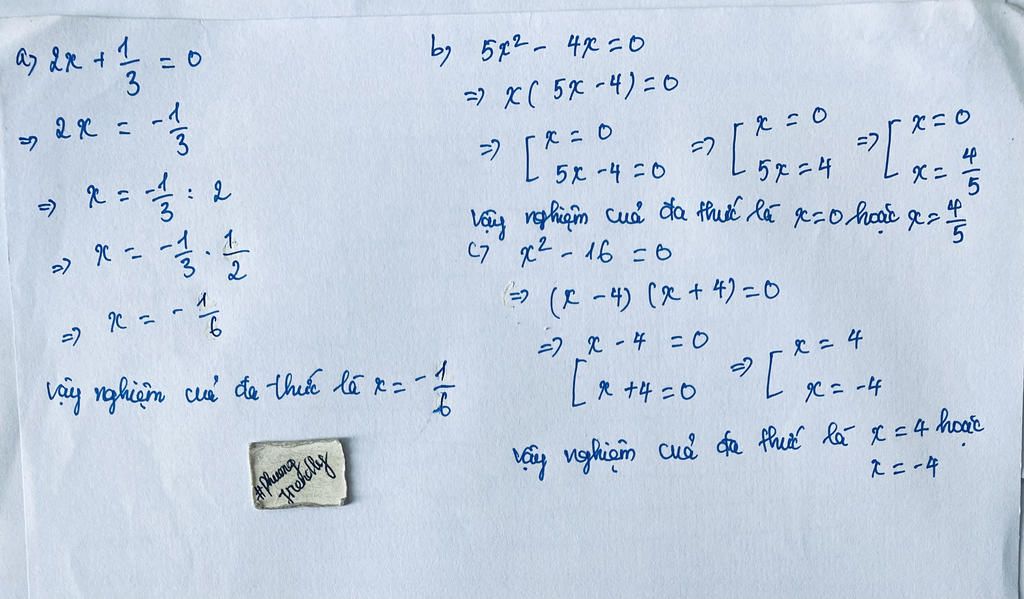 a) 2x + 1/3 = 0
=> 2x = -1/3
=> x = -1/3 : 2
=> x = -1/3 . 1/2
=> x = -1/6
Vậy nghiệm cuả đa thức là x = -1/6
b) 5x² - 4x = 0
=> x( 5x - 4) = 0
=> [ x = 0 => [ x = 0 => [ x = 0
5x - 4 = 0 5x = 4 x = 4/5
Vậy nghiệm cuả đa thức là x = 0 hoặc x = 4/5
c) x² - 16 = 0
=> (x - 4) (x + 4) = 0
=> [ x - 4 = 0 => [ x = 4
x + 4 = 0 x = -4
Vậy nghiệm cuả đa thức là x = 4 hoặc
x = -4
#phuong